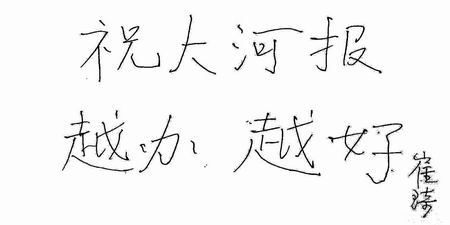 祝大河报
越办越好
崔琦